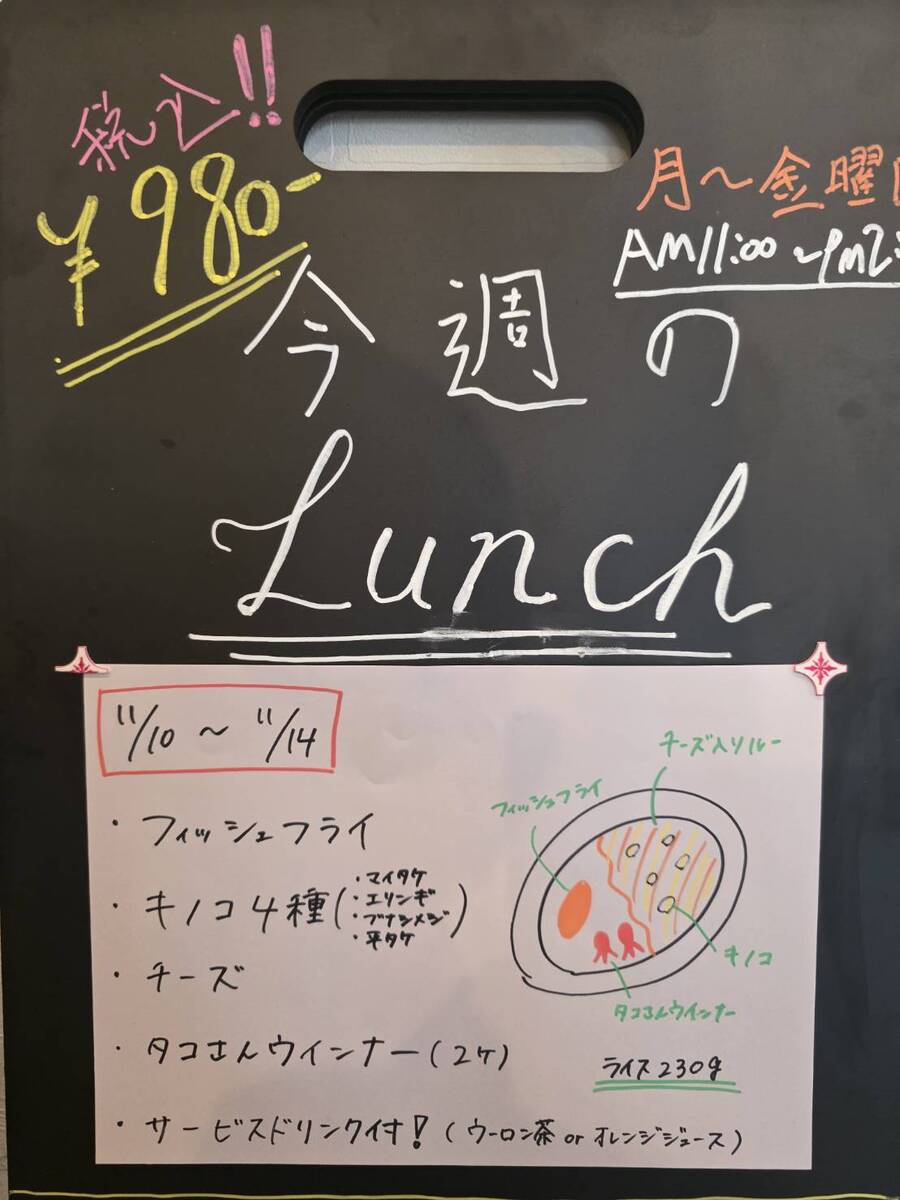 税込!!
¥980-
月～金曜
AM11:00 ~PM2:
今週の
Lunch
11/10 ~ 11/14
・フィッシュフライ
・キノコ4種(・マイタケ
・エリンギ
・ブナシメジ
・平タケ)
・チーズ
・タコさんウインナー(2ケ)
・サービスドリンク付!(ウーロン茶 or オレンジジュース)
チーズ入りルー
フィッシュフライ
キノコ
タコさんウインナー
ライス230g